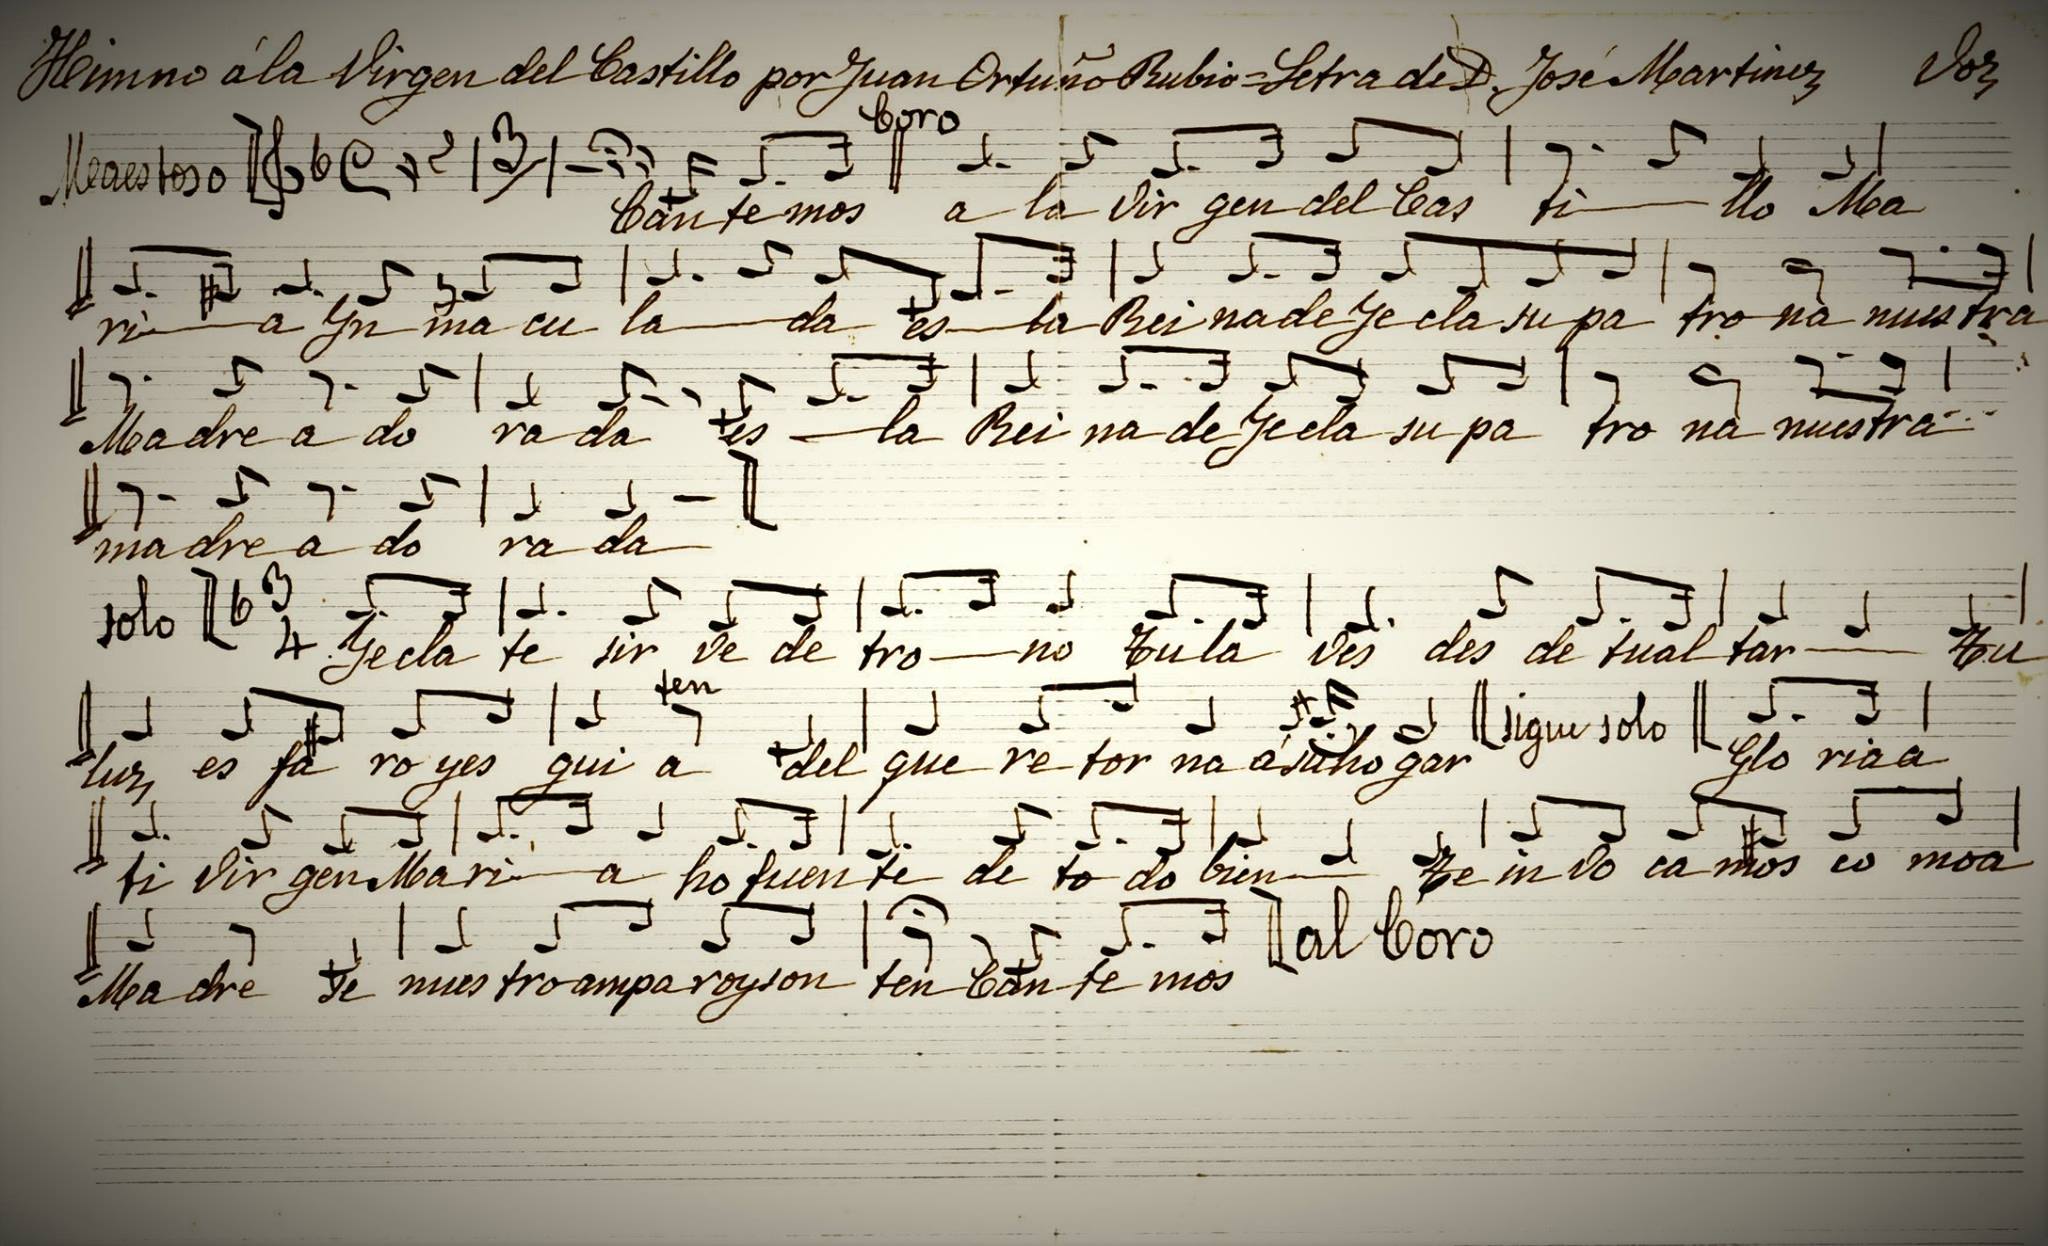 Himno á la Virgen del Castillo por Juan Ortuño Rubio = Letra de D. José Martinez Voz
Coro
Maestoso 3
Cantemos a la Vir gen del Cas ti llo Ma
ri a Yn ma cu la da es la Rei na de Ye cla su pa tro na nuestra
Madre a do rada es la Rei na de Yecla su pa tro na nuestra
madre a do ra da
solo 3 4 Yecla te sir ve de tro no Tu la ves des de tu al tar Tu
ten
luz es fa ro y es gui a del que re tor na á su ho gar sigue solo Glo ria a
ti Vir gen Mari a ho fuen te de to do bien Te in vo ca mos co mo a
Madre se nues tro ampa ro y son ten Can te mos al Coro